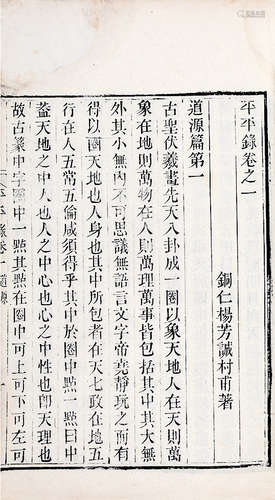 平平錄卷之一
銅仁楊芳誠村甫著
道源篇第一
古聖伏羲畫先天八卦成一圈以象天地人在天則萬
象在地則萬物在人則萬理萬事皆包括其中其大無
外其小無內不可思議無語言文字帝堯靜玩之而有
得以圈天地也人身也其中所包者在天七政在地五
行在人五常五倫咸須得乎其中於圈中點一點曰中
蓋天地之中人也人之中心也心之中性也卽天理也
故古篆中字圈中一點其點在圈中可上可下可左可
平平錄卷一 道源